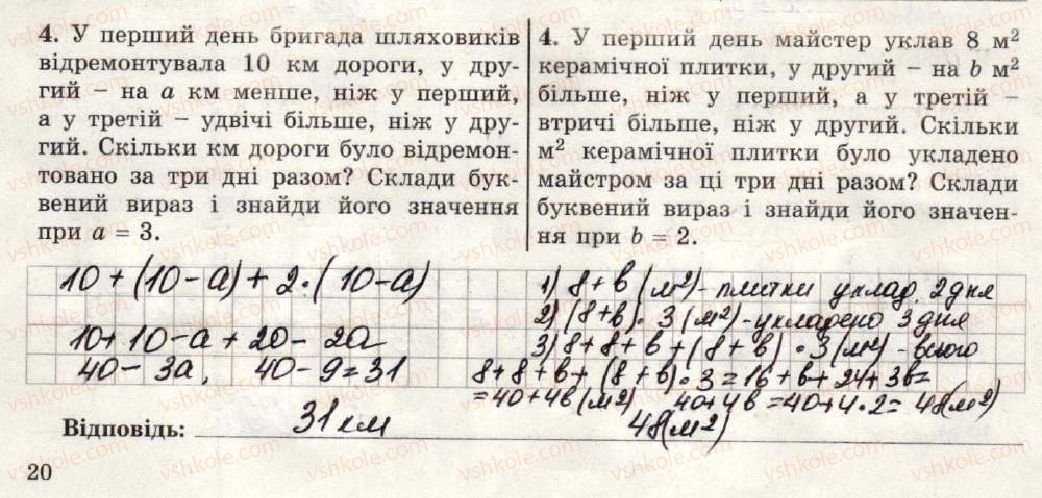 4. У перший день бригада шляховиків
відремонтувала 10 км дороги, у дру-
гий – на a км менше, ніж у перший,
а у третій – удвічі більше, ніж у дру-
гий. Скільки км дороги було відремон-
товано за три дні разом? Склади бук-
вений вираз і знайди його значення
при a = 3.
4. У перший день майстер уклав 8 м²
керамічної плитки, у другий – на b м²
більше, ніж у перший, а у третій –
втричі більше, ніж у другий. Скільки
м² керамічної плитки було укладено
майстром за ці три дні разом? Склади
буквений вираз і знайди його значен-
ня при b = 2.
10 + (10 - a) + 2 · (10 - a)
10 + 10 - a + 20 - 2a
40 - 3a, 40 - 9 = 31
1) 8 + в (м²) - плитки уклад. 2 дня
2) (8 + в) · 3 (м²) - укладено 3 дня
3) 8 + 8 + в + (8 + в) · 3 (м²) - всього
8 + 8 + в + (8 + в) · 3 = 16 + в + 24 + 3в =
= 40 + 4в (м²) 40 + 4в = 40 + 4 · 2 = 48 (м²)
Відповідь: 31 км 48 (м²)
20
vshkole.com